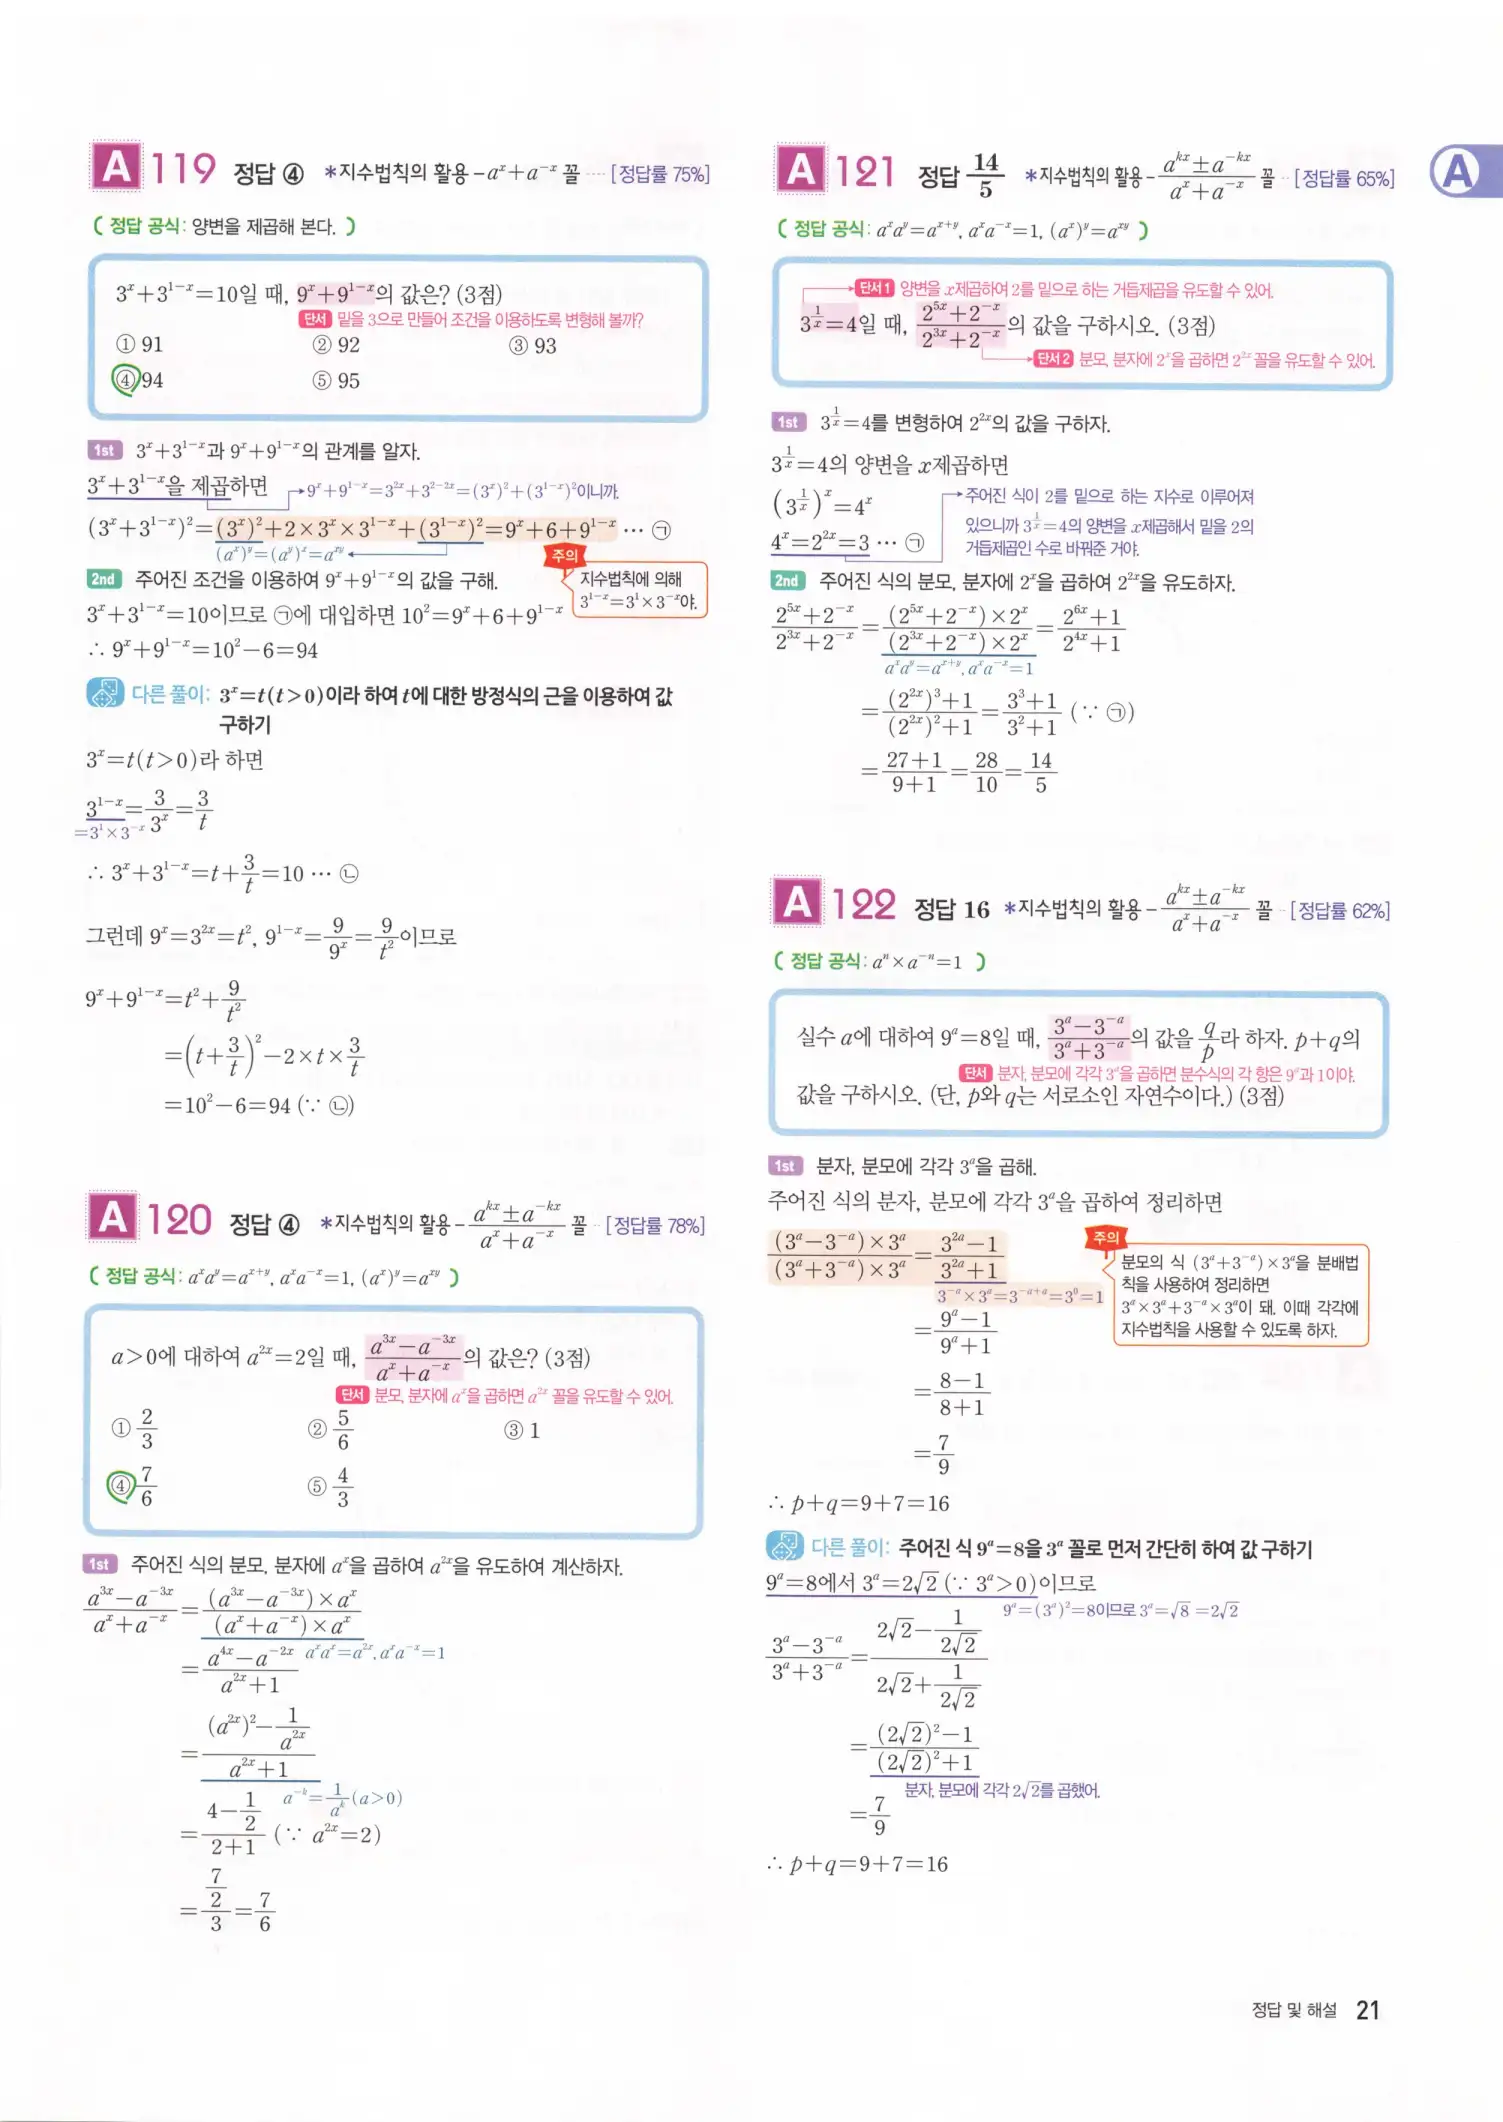 A 119 정답 ④ *지수법칙의 활용-aˣ+a⁻ˣ 꼴 ···· [정답률 75%]
( 정답 공식: 양변을 제곱해 본다. )
3ˣ+3¹⁻ˣ=10일 때, 9ˣ+9¹⁻ˣ의 값은? (3점)
단서 밑을 3으로 만들어 조건을 이용하도록 변형해 볼까?
① 91 ② 92 ③ 93
④ 94 ⑤ 95
1st 3ˣ+3¹⁻ˣ과 9ˣ+9¹⁻ˣ의 관계를 알자.
3ˣ+3¹⁻ˣ을 제곱하면 9ˣ+9¹⁻ˣ=3²ˣ+3²⁻²ˣ=(3ˣ)²+(3¹⁻ˣ)²이니까.
(3ˣ+3¹⁻ˣ)²=(3ˣ)²+2×3ˣ×3¹⁻ˣ+(3¹⁻ˣ)²=9ˣ+6+9¹⁻ˣ ··· ㉠
(aˣ)ʸ=(aʸ)ˣ=aˣʸ
주의
2nd 주어진 조건을 이용하여 9ˣ+9¹⁻ˣ의 값을 구해.
지수법칙에 의해
3¹⁻ˣ=3¹×3⁻ˣ야.
3ˣ+3¹⁻ˣ=10이므로 ㉠에 대입하면 10²=9ˣ+6+9¹⁻ˣ
∴ 9ˣ+9¹⁻ˣ=10²-6=94
다른 풀이: 3ˣ=t(t>0)이라 하여 t에 대한 방정식의 근을 이용하여 값
구하기
3ˣ=t(t>0)라 하면
3¹⁻ˣ=3/3ˣ=3/t
=3¹×3⁻ˣ
∴ 3ˣ+3¹⁻ˣ=t+3/t=10 ··· ㉡
그런데 9ˣ=3²ˣ=t², 9¹⁻ˣ=9/9ˣ=9/t²이므로
9ˣ+9¹⁻ˣ=t²+9/t²
=(t+3/t)²-2×t×3/t
=10²-6=94 (∵ ㉡)
A 120 정답 ④ *지수법칙의 활용-(aᵏˣ±a⁻ᵏˣ)/(aˣ+a⁻ˣ) 꼴 ·· [정답률 78%]
( 정답 공식: aˣaʸ=aˣ⁺ʸ, aˣa⁻ˣ=1, (aˣ)ʸ=aˣʸ )
a>0에 대하여 a²ˣ=2일 때, (a³ˣ-a⁻³ˣ)/(aˣ+a⁻ˣ)의 값은? (3점)
단서 분모, 분자에 aˣ을 곱하면 a²ˣ 꼴을 유도할 수 있어.
① 2/3 ② 5/6 ③ 1
④ 7/6 ⑤ 4/3
1st 주어진 식의 분모, 분자에 aˣ을 곱하여 a²ˣ을 유도하여 계산하자.
(a³ˣ-a⁻³ˣ)/(aˣ+a⁻ˣ)=((a³ˣ-a⁻³ˣ)×aˣ)/((aˣ+a⁻ˣ)×aˣ)
=(a⁴ˣ-a⁻²ˣ)/(a²ˣ+1) aˣaˣ=a²ˣ, aˣa⁻ˣ=1
=((a²ˣ)²-1/a²ˣ)/(a²ˣ+1)
a⁻ᵏ=1/aᵏ(a>0)
=(4-1/2)/(2+1) (∵ a²ˣ=2)
=(7/2)/3=7/6
A 121 정답 14/5 *지수법칙의 활용-(aᵏˣ±a⁻ᵏˣ)/(aˣ+a⁻ˣ) 꼴 ·· [정답률 65%]
A
( 정답 공식: aˣaʸ=aˣ⁺ʸ, aˣa⁻ˣ=1, (aˣ)ʸ=aˣʸ )
단서1 양변을 x제곱하여 2를 밑으로 하는 거듭제곱을 유도할 수 있어.
3^(1/x)=4일 때, (2⁵ˣ+2⁻ˣ)/(2³ˣ+2⁻ˣ)의 값을 구하시오. (3점)
단서2 분모, 분자에 2ˣ을 곱하면 2²ˣ 꼴을 유도할 수 있어.
1st 3^(1/x)=4를 변형하여 2²ˣ의 값을 구하자.
3^(1/x)=4의 양변을 x제곱하면
(3^(1/x))ˣ=4ˣ
4ˣ=2²ˣ=3 ··· ㉠
주어진 식이 2를 밑으로 하는 지수로 이루어져
있으니까 3^(1/x)=4의 양변을 x제곱해서 밑을 2의
거듭제곱인 수로 바꿔준 거야.
2nd 주어진 식의 분모, 분자에 2ˣ을 곱하여 2²ˣ을 유도하자.
(2⁵ˣ+2⁻ˣ)/(2³ˣ+2⁻ˣ)=((2⁵ˣ+2⁻ˣ)×2ˣ)/((2³ˣ+2⁻ˣ)×2ˣ)=(2⁶ˣ+1)/(2⁴ˣ+1)
aˣaʸ=aˣ⁺ʸ, aˣa⁻ˣ=1
=((2²ˣ)³+1)/((2²ˣ)²+1)=(3³+1)/(3²+1) (∵ ㉠)
=(27+1)/(9+1)=28/10=14/5
A 122 정답 16 *지수법칙의 활용-(aᵏˣ±a⁻ᵏˣ)/(aˣ+a⁻ˣ) 꼴 ·· [정답률 62%]
( 정답 공식: aⁿ×a⁻ⁿ=1 )
실수 a에 대하여 9ᵃ=8일 때, (3ᵃ-3⁻ᵃ)/(3ᵃ+3⁻ᵃ)의 값을 q/p라 하자. p+q의
단서 분자, 분모에 각각 3ᵃ을 곱하면 분수식의 각 항은 9ᵃ과 1이야.
값을 구하시오. (단, p와 q는 서로소인 자연수이다.) (3점)
1st 분자, 분모에 각각 3ᵃ을 곱해.
주어진 식의 분자, 분모에 각각 3ᵃ을 곱하여 정리하면
((3ᵃ-3⁻ᵃ)×3ᵃ)/((3ᵃ+3⁻ᵃ)×3ᵃ)=(3²ᵃ-1)/(3²ᵃ+1)
3⁻ᵃ×3ᵃ=3⁻ᵃ⁺ᵃ=3⁰=1
주의
분모의 식 (3ᵃ+3⁻ᵃ)×3ᵃ을 분배법
칙을 사용하여 정리하면
3ᵃ×3ᵃ+3⁻ᵃ×3ᵃ이 돼. 이때 각각에
지수법칙을 사용할 수 있도록 하자.
=(9ᵃ-1)/(9ᵃ+1)
=(8-1)/(8+1)
=7/9
∴ p+q=9+7=16
다른 풀이: 주어진 식 9ᵃ=8을 3ᵃ 꼴로 먼저 간단히 하여 값 구하기
9ᵃ=8에서 3ᵃ=2√2 (∵ 3ᵃ>0)이므로
9ᵃ=(3ᵃ)²=8이므로 3ᵃ=√8=2√2
(3ᵃ-3⁻ᵃ)/(3ᵃ+3⁻ᵃ)=(2√2-1/(2√2))/(2√2+1/(2√2))
=((2√2)²-1)/((2√2)²+1)
분자, 분모에 각각 2√2를 곱했어.
=7/9
∴ p+q=9+7=16
정답 및 해설 21